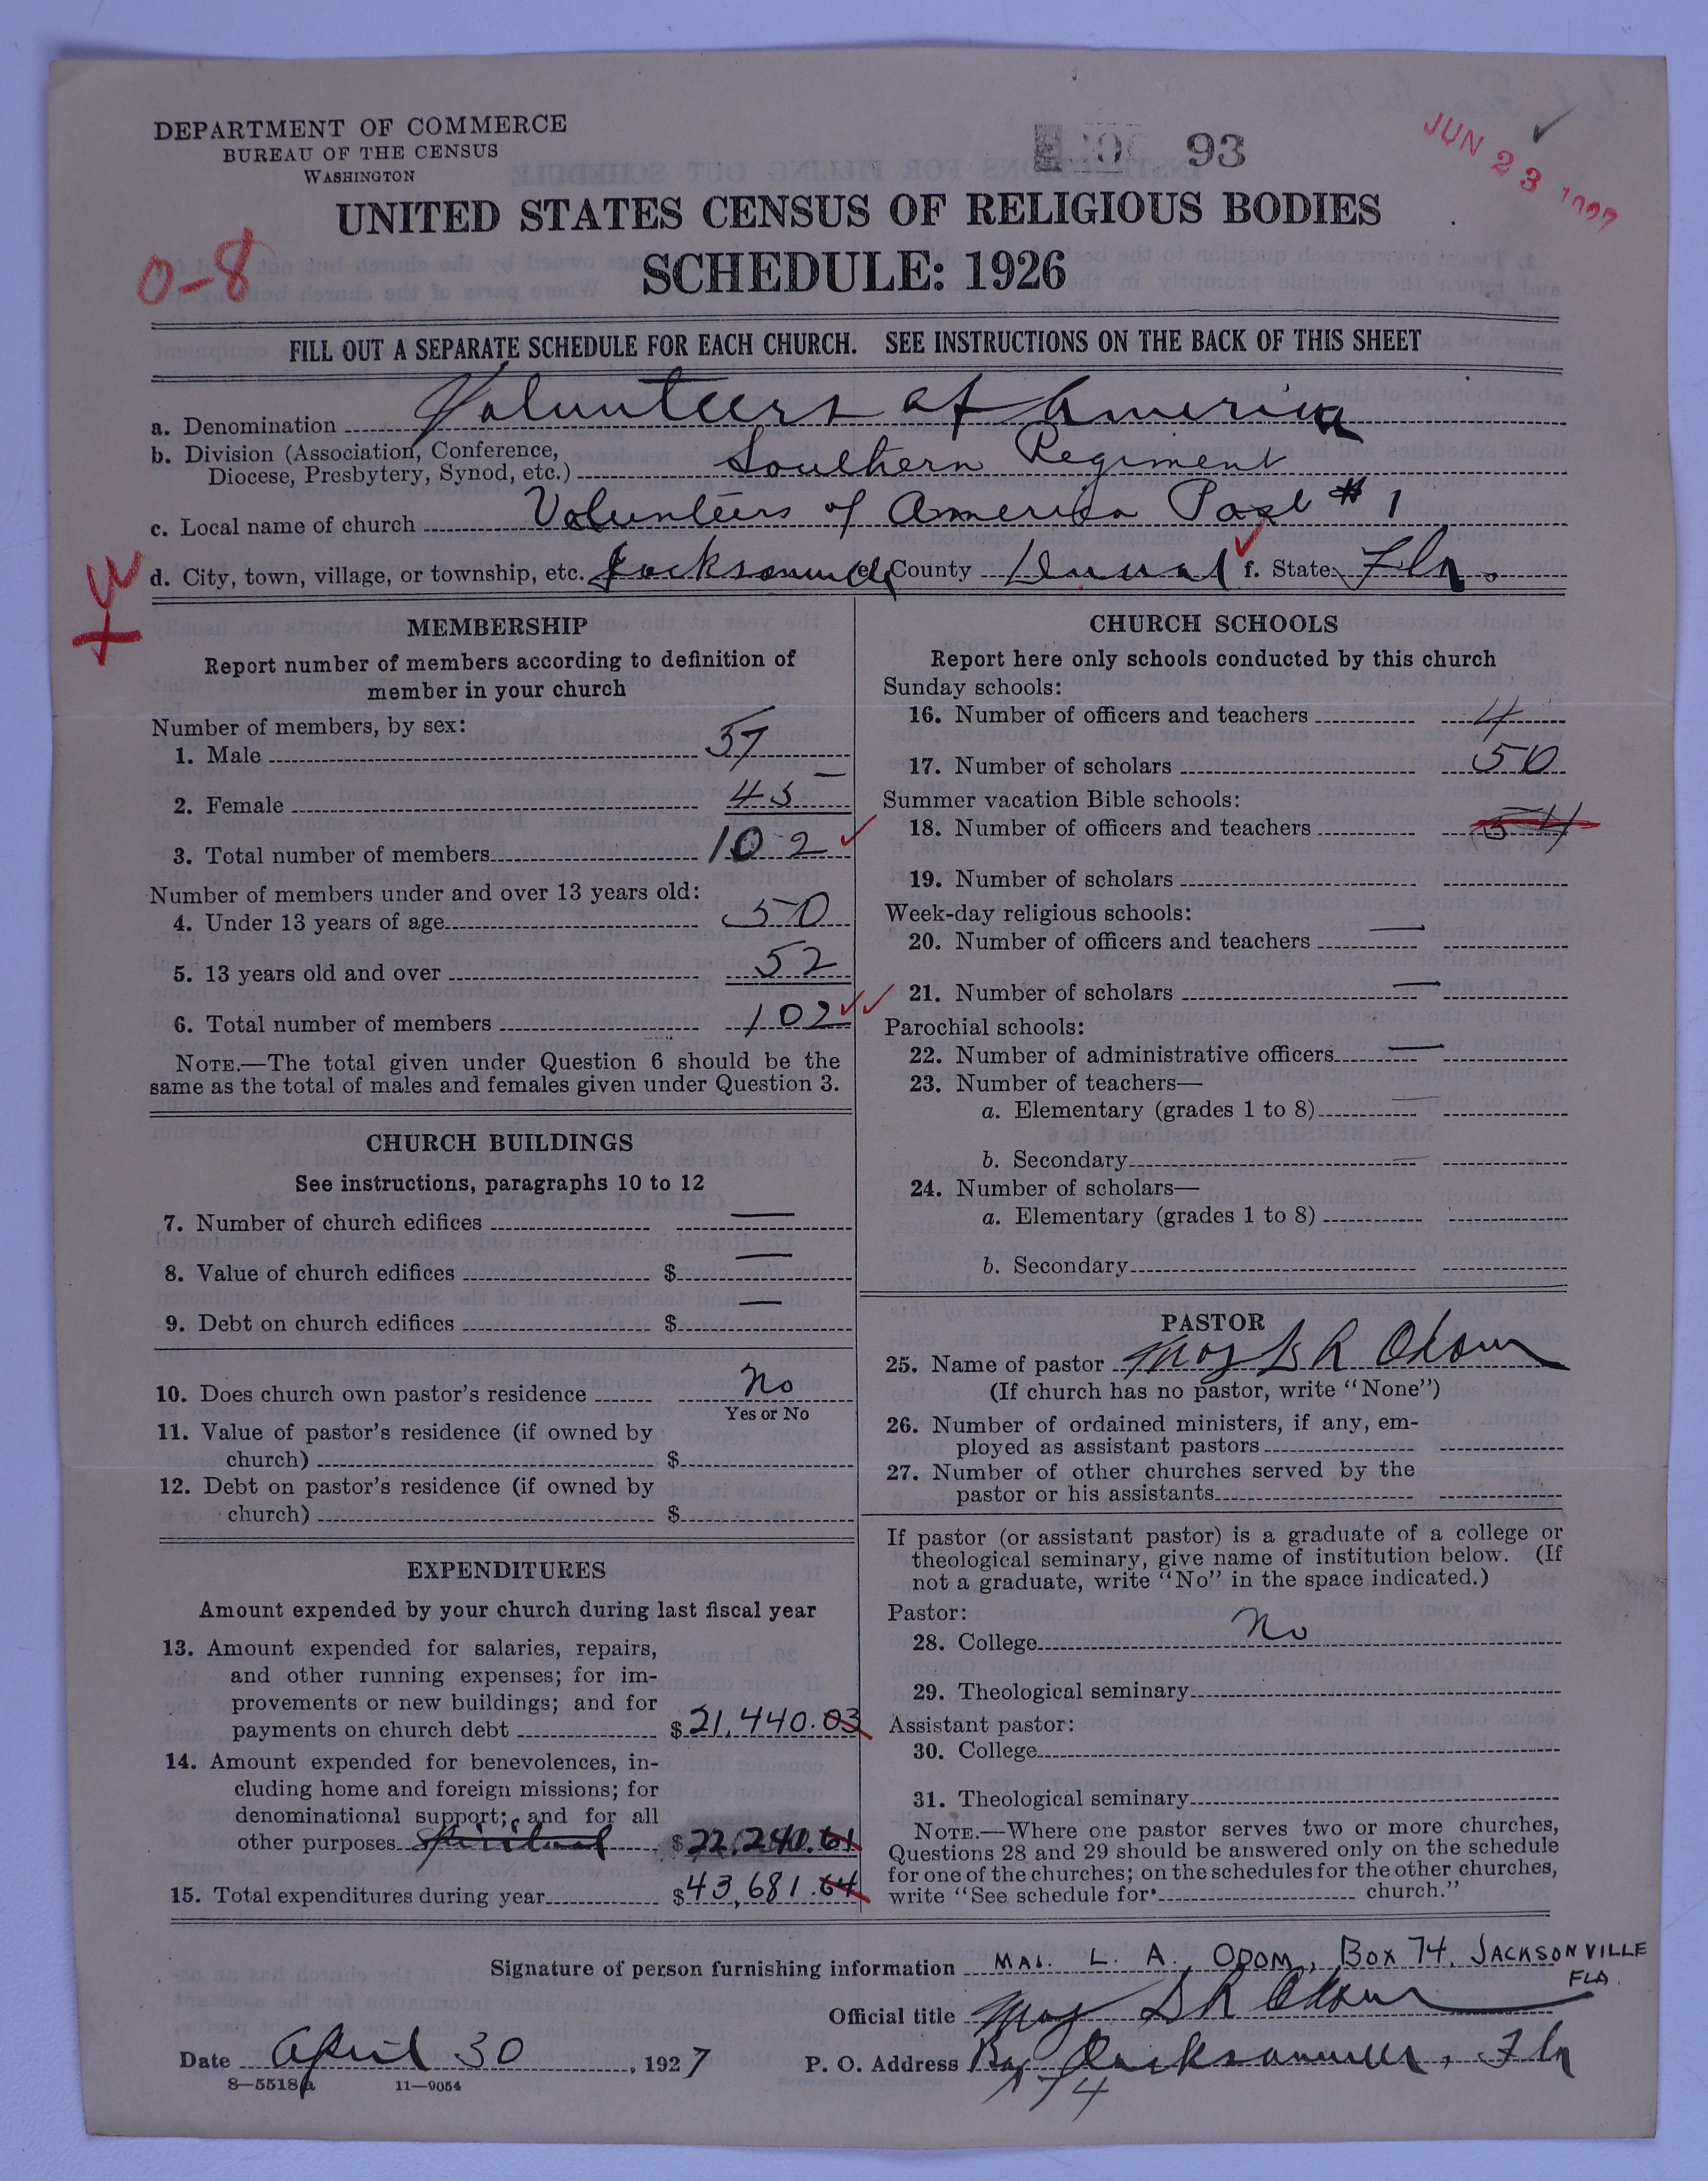 DEPARTMENT OF COMMERCE
BUREAU OF THE CENSUS
WASHINGTON
93
JUN 23
UNITED STATES CENSUS OF RELIGIOUS BODIES
SCHEDULE: 1926
0-8
FILL OUT A SEPARATE SCHEDULE FOR EACH CHURCH. SEE INSTRUCTIONS ON THE BACK OF THIS SHEET
a. Denomination Volunteers of America
b. Division (Association, Conference,
Diocese, Presbytery, Synod, etc.) Southern Regiment
c. Local name of church Volunteers of America Post # 1
d. City, town, village, or township, etc. Jacksonville e. County Duval f. State Fla.
MEMBERSHIP
Report number of members according to definition of
member in your church
Number of members, by sex:
1. Male 57
2. Female 45
3. Total number of members 102
Number of members under and over 13 years old:
4. Under 13 years of age 50
5. 13 years old and over 52
6. Total number of members 102
NOTE.—The total given under Question 6 should be the
same as the total of males and females given under Question 3.
CHURCH BUILDINGS
See instructions, paragraphs 10 to 12
7. Number of church edifices —
8. Value of church edifices $ —
9. Debt on church edifices $ —
10. Does church own pastor's residence No
Yes or No
11. Value of pastor's residence (if owned by
church) $
12. Debt on pastor's residence (if owned by
church) $
EXPENDITURES
Amount expended by your church during last fiscal year
13. Amount expended for salaries, repairs,
and other running expenses; for im-
provements or new buildings; and for
payments on church debt $21,440.03
14. Amount expended for benevolences, in-
cluding home and foreign missions; for
denominational support; and for all
other purposes spiritual $22,240.61
15. Total expenditures during year $43,681.64
CHURCH SCHOOLS
Report here only schools conducted by this church
Sunday schools:
16. Number of officers and teachers 4
17. Number of scholars 50
Summer vacation Bible schools:
18. Number of officers and teachers 54
19. Number of scholars
Week-day religious schools:
20. Number of officers and teachers —
21. Number of scholars —
Parochial schools:
22. Number of administrative officers —
23. Number of teachers—
a. Elementary (grades 1 to 8) —
b. Secondary —
24. Number of scholars—
a. Elementary (grades 1 to 8)
b. Secondary
PASTOR
25. Name of pastor Maj L A Odom
(If church has no pastor, write "None")
26. Number of ordained ministers, if any, em-
ployed as assistant pastors
27. Number of other churches served by the
pastor or his assistants
If pastor (or assistant pastor) is a graduate of a college or
theological seminary, give name of institution below. (If
not a graduate, write "No" in the space indicated.)
Pastor:
28. College No
29. Theological seminary
Assistant pastor:
30. College
31. Theological seminary
NOTE.—Where one pastor serves two or more churches,
Questions 28 and 29 should be answered only on the schedule
for one of the churches; on the schedules for the other churches,
write "See schedule for church."
Signature of person furnishing information MAJ. L. A. ODOM, BOX 74, JACKSONVILLE
FLA.
Official title Maj L A Odom
Date April 30, 1927
P. O. Address Box Jacksonville, Fla
74
8—5518a 11—9054